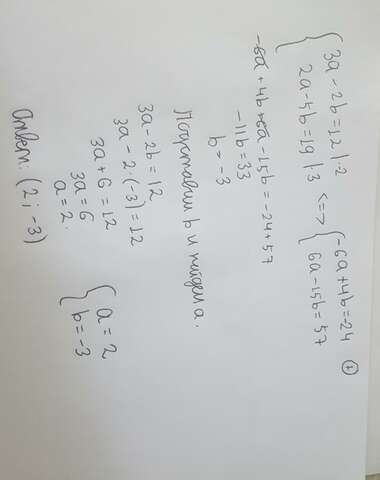 3a - 2b = 12 |·-2 <=> { -6a + 4b = -24
{ 2a - 5b = 19 |·3 6a - 15b = 57
-6a + 4b + 6a - 15b = -24 + 57
-11b = 33
b = -3
Подставим b и найдем a.
3a - 2b = 12
3a - 2·(-3) = 12
3a + 6 = 12
3a = 6
a = 2.
{ a = 2
b = -3
Ответ: (2; -3)